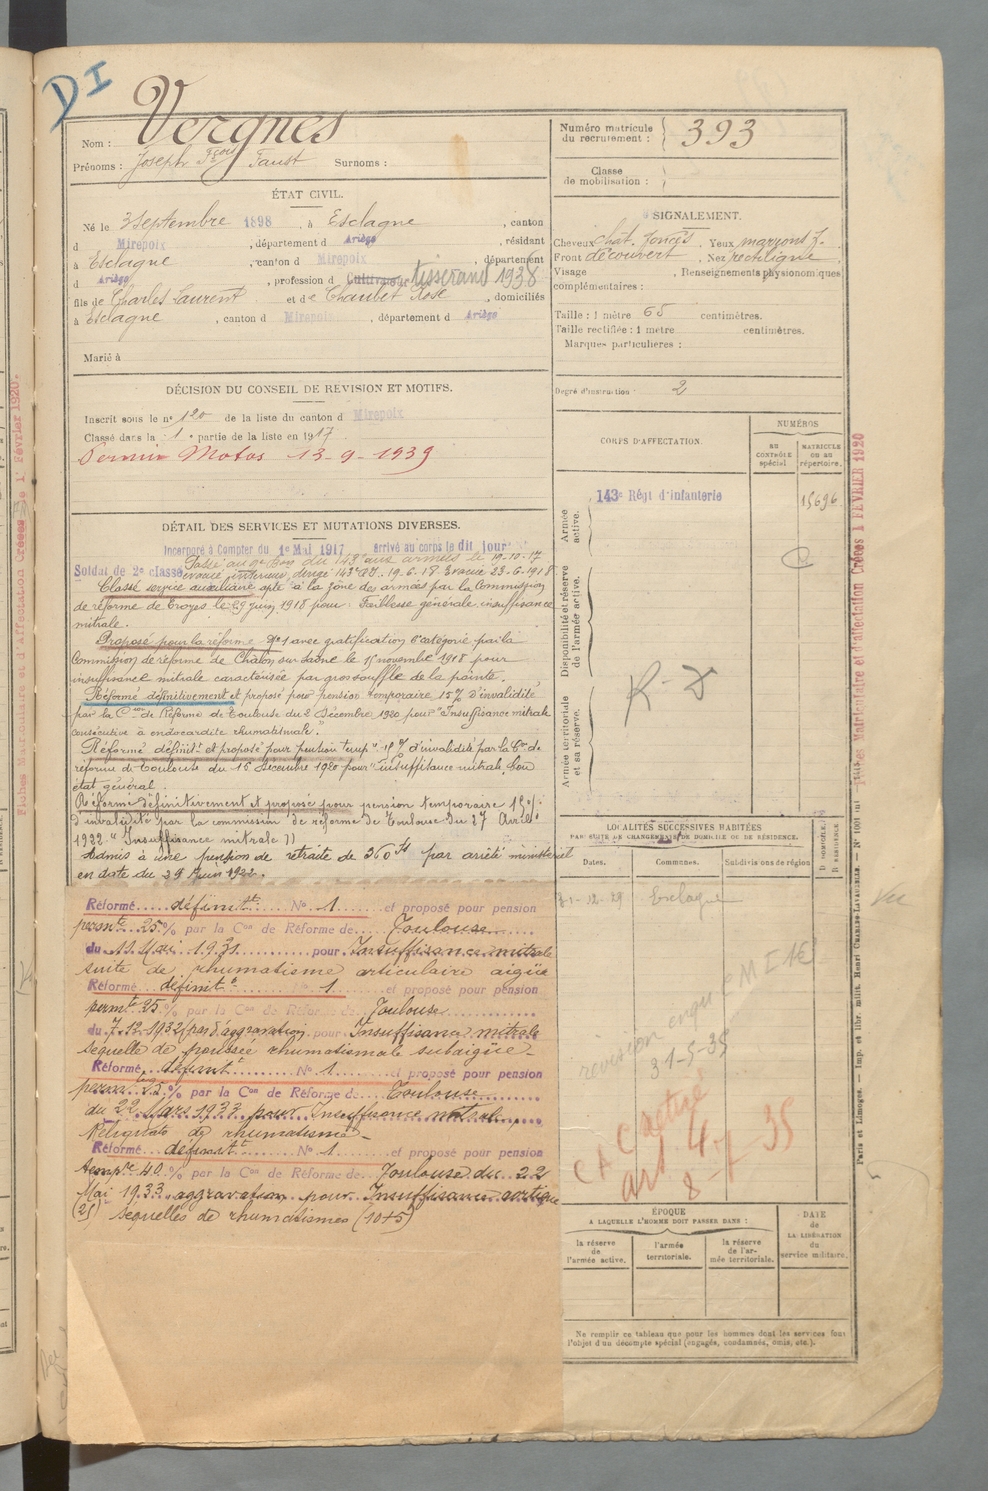 DI
Nom : Vergnes
Prénoms : Joseph Fçois Faust Surnoms :
Numéro matricule du recrutement : 393
Classe de mobilisation :
ÉTAT CIVIL.
Né le 3 Septembre 1898, à Esclagne, canton
d Mirepoix, département d Ariège, résidant
à Esclagne, canton d Mirepoix, département
d Ariège, profession d Cultivateur tisserand 1938
fils de Charles Laurent et de Chaubet Rose, domiciliés
à Esclagne, canton d Mirepoix, département d Ariège
Marié à
SIGNALEMENT.
Cheveux chât. foncés Yeux marrons f.
Front découvert, Nez rectiligne
Visage , Renseignements physionomiques
complémentaires :
Taille : 1 mètre 65 centimètres.
Taille rectifiée : 1 mètre centimètres.
Marques particulières :
Degré d'instruction : 2
DÉCISION DU CONSEIL DE RÉVISION ET MOTIFS.
Inscrit sous le n° 120 de la liste du canton d Mirepoix
Classé dans la 1e partie de la liste en 1917
Permis Motos 13-9-1939
DÉTAIL DES SERVICES ET MUTATIONS DIVERSES.
Incorporé à Compter du 1er Mai 1917 arrivé au corps le dit jour
Soldat de 2e classe
aux armées le 19-10-17
dirigé 143e RI. 19-6-18 Evacué 23-6-1918
Classé service auxiliaire apte à la zône des armées par la Commission
de réforme de Troyes le 29 juin 1918 pour : Faiblesse générale, insuffisance
mitrale.
Proposé pour la réforme N°1 avec gratification 6e catégorie par la
Commission de réforme de Châlon sur Saône le 15 novembre 1918 pour
insuffisance mitrale caractérisée par gros souffle de la pointe.
Réformé définitivement et proposé pour pension temporaire, 15% d'invalidité
par la Cion de Réforme de Toulouse du 2 Décembre 1920 pour "Insuffisance mitrale
consécutive à endocardite rhumatismale".
Réformé définit. et proposé pour pention temp. 15% d'invalidité par la Con de
réforme de Toulouse du 16 Décembre 1920 pour "insuffisance mitrale, bon
état général.
Réformé définitivement et proposé pour pension temporaire 15%
d'invalidité par la commission de réforme de Toulouse du 27 Avril
1922 "Insuffisance mitrale"
Admis à une pension de retraite de 360 fs par arrêté ministériel
en date du 29 Juin 1922.
Réformé définitt N° 1 et proposé pour pension
permte 25% par la Con de Réforme de Toulouse
du 11 Mai 1931 pour Insuffisance mitrale
suite de rhumatisme articulaire aigüe
Réformé définit t N° 1 et proposé pour pension
permte 25% par la Con de Réforme de Toulouse
du 7-12-1932 (pas d'aggravation) pour Insuffisance mitrale
sequelle de poussée rhumatismale subaigüe
Réformé définit t N° 1 et proposé pour pension
permte 25% par la Con de Réforme de Toulouse
du 22 Mars 1933 pour Insuffisance mitrale
Reliquats de rhumatisme
Réformé définit t N° 1 et proposé pour pension
tempre 40% par la Con de Réforme de Toulouse du 22
Mai 1933 aggravation pour Insuffisance aortique
(25) Sequelles de rhumatismes (10+5)
CORPS D'AFFECTATION.
NUMÉROS
au contrôle spécial
matricule ou au répertoire.
Armée active.
143e Régt d'Infanterie 15696
Disponibilité et réserve de l'armée active.
Armée territoriale et sa réserve.
LOCALITÉS SUCCESSIVES HABITÉES
PAR SUITE DE CHANGEMENTS DE DOMICILE OU DE RÉSIDENCE.
D DOMICILE. R RÉSIDENCE
Dates. Communes. Subdivisions de région
Esclagne
Vu
révision
31-5-35
art. 4
8-7-35
ÉPOQUE
A LAQUELLE L'HOMME DOIT PASSER DANS :
la réserve de l'armée active.
l'armée territoriale.
la réserve de l'armée territoriale.
DATE de LA LIBÉRATION du service militaire.
Ne remplir ce tableau que pour les hommes dont les services font
l'objet d'un décompte spécial (engagés, condamnés, omis, etc.).
Fiches Matriculaire et d'affectation Créées 1 FÉVRIER 1920
Paris et Limoges. — Imp. et libr. milit. Henri Charles-Lavauzelle. — N° 1001
Fiches Matriculaire et d'Affectation Créées le 1 Février 1920.